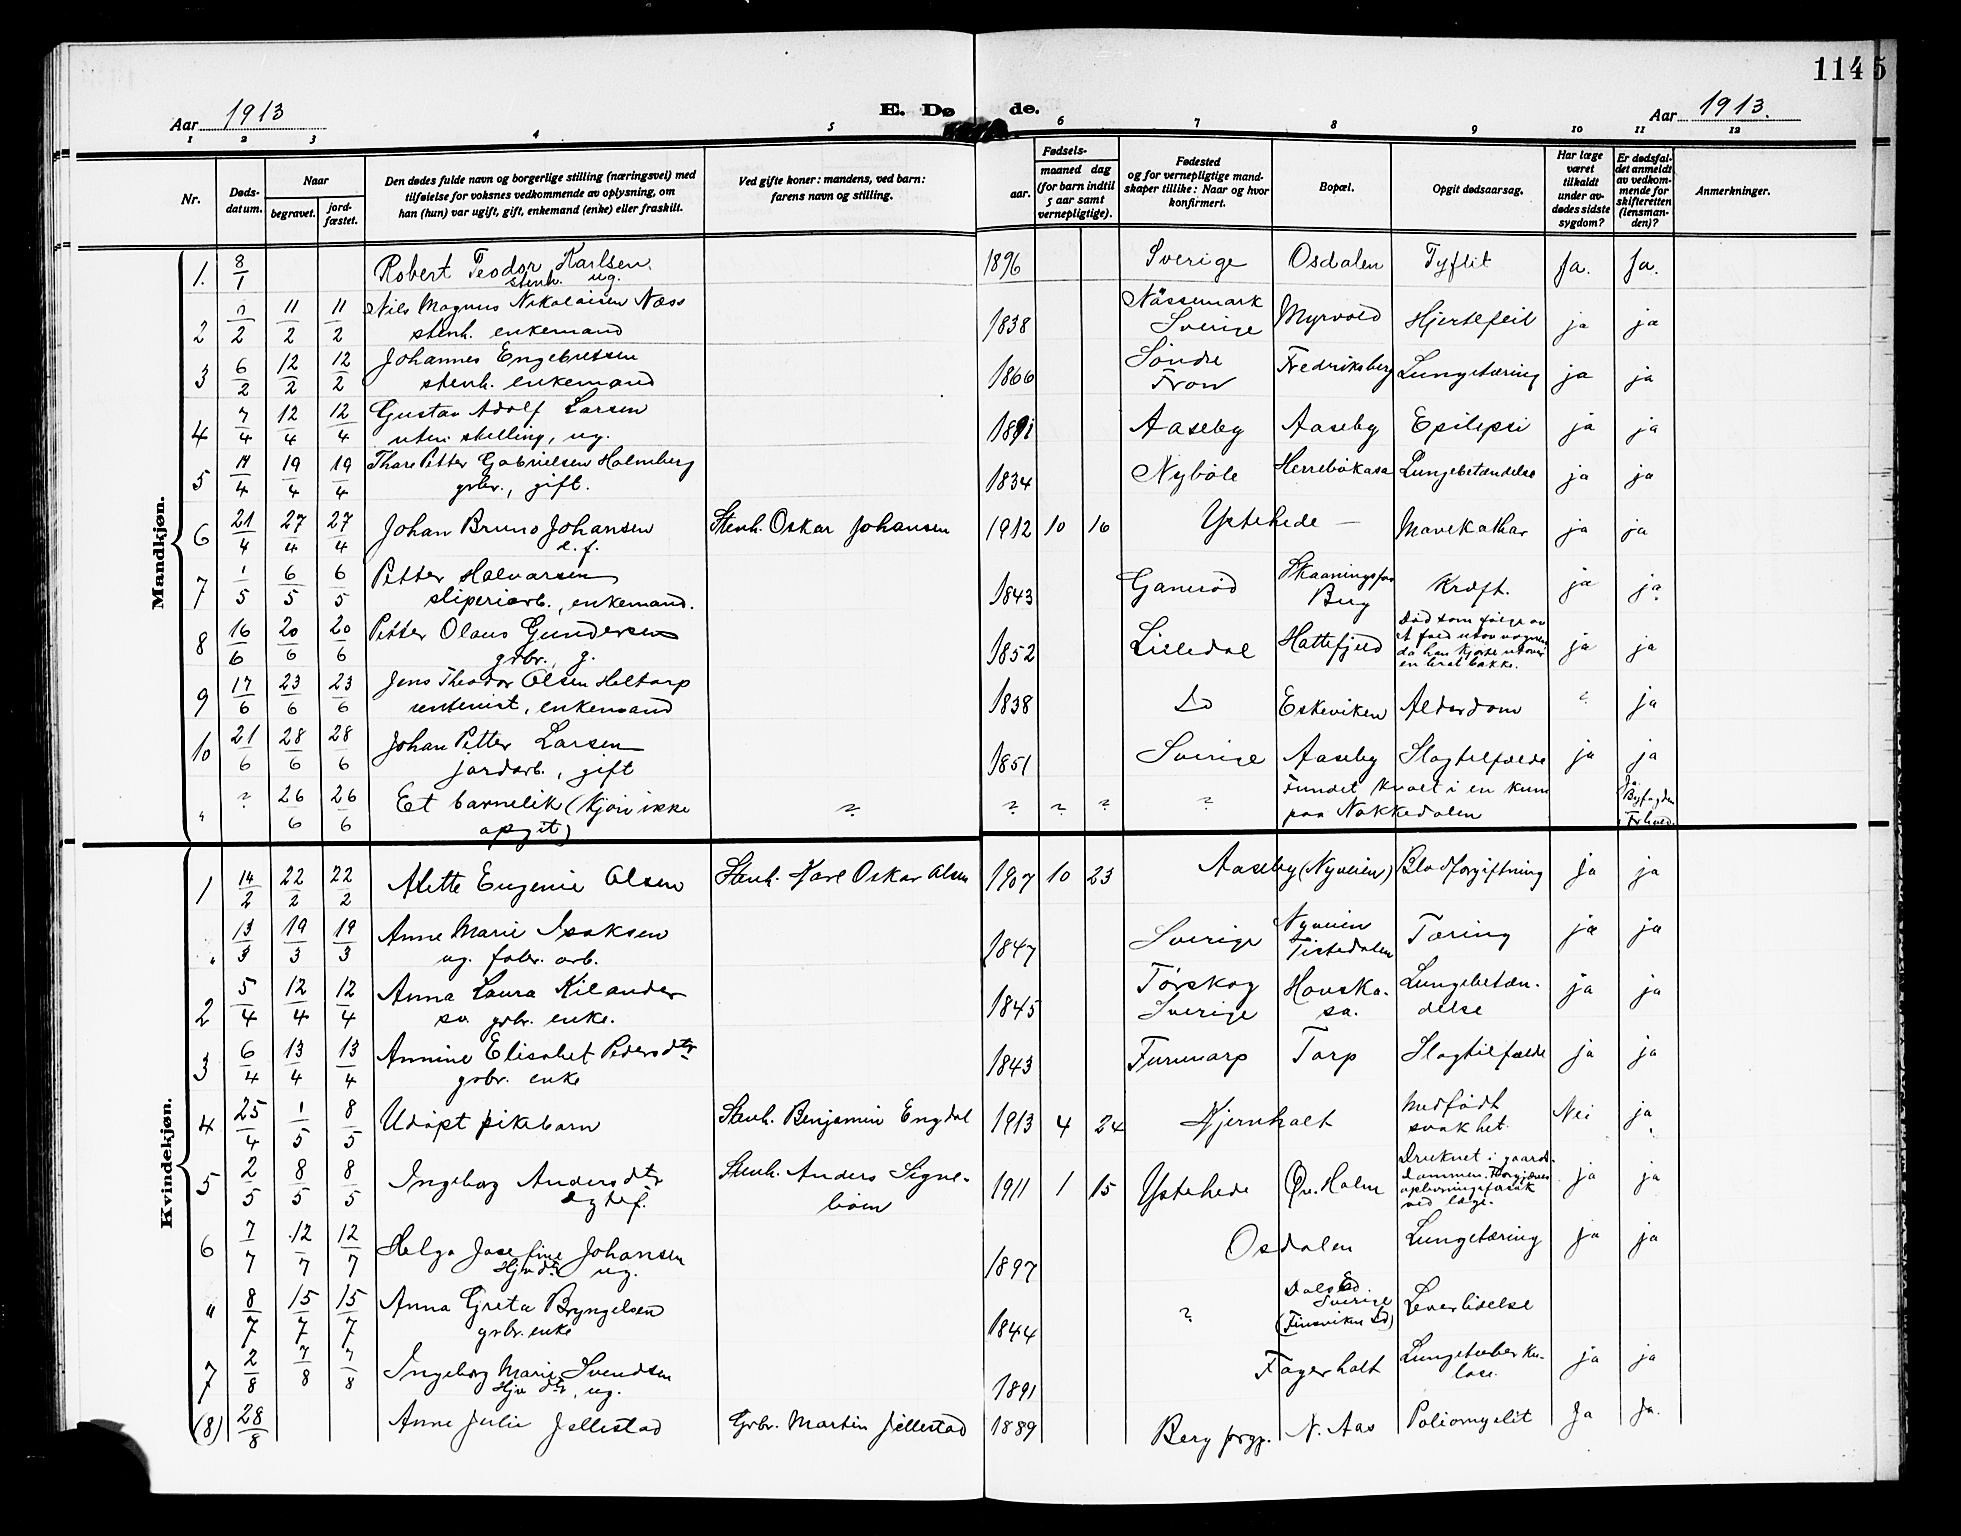 1145
Aar 1913
E. Døde.
Aar 1913.
1 2 3 4 5 6 7 8 9 10 11 12
Nr.
Døds-
datum.
Naar
begravet.
jord-
fæstet.
Den dødes fulde navn og borgerlige stilling (næringsvei) med
tilføielse for voksnes vedkommende av oplysning, om
han (hun) var ugift, gift, enkemand (enke) eller fraskilt.
Ved gifte koner: mandens, ved barn:
farens navn og stilling.
Fødsels-
aar.
maaned dag
(for barn indtil
5 aar samt
vernepligtige).
Fødested
og for vernepligtige mand-
skaper tillike: Naar og hvor
konfirmert.
Bopæl.
Opgit dødsaarsag.
Har læge
været
tilkaldt
under av-
dødes sidste
sygdom?
Er dødsfal-
det anmeldt
av vedkom-
mende for
skifteretten
(lensman-
den)?
Anmerkninger.
Mandkjøn.
1. 8/1 Robert Teodor Karlsen 1896 Sverige Osdalen Tyflit Ja. Ja.
stenh. ug.
2 11/2 11/2 Nils Magnus Nikolaisen Næss 1838 Nössemark Myrvold Hjertefeil ja ja
stenh. enkemand Sverige
3 6/2 12/2 12/2 Johannes Engebretsen 1866 Søndre Fredriksberg Lungetæring ja ja
stenh. enkemand Fron
4 7/4 12/4 12/4 Gustav Adolf Larsen 1891 Aaseby Aaseby Epilepsi ja ja
uten stilling, ug.
5 14/4 19/4 19/4 Thore Petter Gabrielsen Holmberg 1834 Nyböle Herrebökasa Lungebetændelse ja ja
grbr., gift.
6 21/4 27/4 27/4 Johan Bruno Johansen Stenh. Oskar Johansen 1912 10 16 Ystehede — Mavekathar ja ja
d. f.
7 1/5 6/5 6/5 Petter Halvorsen 1843 Ganerød Kræft. ja ja
sliperiarb., enkemand. Berg
8 16/6 20/6 20/6 Petter Olaus Gundersen 1852 Lilledal Hattefjeld Død som følge av ja ja
grbr., g. et fald utov vognen
da han kjørte utover
en brat bakke.
9 17/6 23/6 23/6 Jens Theodor Olsen Heltorp 1838 Do Eskeviken Alderdom ? ja
rentenist, enkemand
10 21/6 28/6 28/6 Johan Petter Larsen 1851 Sverige Aaseby Slagtilfælde ja ja
jordarb., gift
" ? 26/6 26/6 Et barnelik (Kjøn ikke ? ? ? ? ? Fundet kvalt i en kum ja
opgit) paa Nakkedalen Byfogden
i Frhald.
Kvindekjøn.
1 14/2 22/2 22/2 Alette Eugenie Olsen Stenh. Karl Oskar Olsen 1907 10 23 Aaseby (Nyveien) Blodforgiftning ja ja
" 13/3 19/3 19/3 Anne Marie Isaksen 1847 Sverige Nyveien Tæring ja ja
ug. fabr. arb. Tistedalen
2 5/4 12/4 12/4 Anna Laura Kilander 1845 Törskog Hovska- Lungebetæn- ja ja
sv. grbr. enke. Sverige sa. delse
3 6/4 13/4 13/4 Annine Elisabet Pedersdtr 1843 Furuvarp Torp Slagtilfælde ja ja
grbr. enke
4 25/4 1/5 8/5 Udøpt pikebarn Stenh. Benjamin Engdal 1913 4 24 Kjernholt Medfødt Nei ja
svakhet.
5 2/5 8/5 8/5 Ingeborg Andersdtr Stenh. Anders Signe- 1911 1 15 Ystehede Øv. Holm Druknet i gaards- ja ja
egtef. böen dammen. Forgjæves
oplivningsforsøk
ved læge.
6 7/7 12/7 12/7 Helga Josefine Johansen 1897 Osdalen Lungetæring ja ja
Hjv dtr ug.
" 8/7 15/7 15/7 Anna Greta Bryngelsen 1844 ? Dals Ed Leverlidelse
grbr. enke Sverige
(Finsviken Ed)
7 2/8 7/8 7/8 Ingeborg Marie Svendsen 1891 Fagerholt Lungetuberku- ja ja
Hjv dtr, ug. lose.
(8) 28/8 Anne Julie Jellestad Grbr. Martin Jellestad 1889 Berg prgj. N. Aas Poliomyelit Ja Ja.